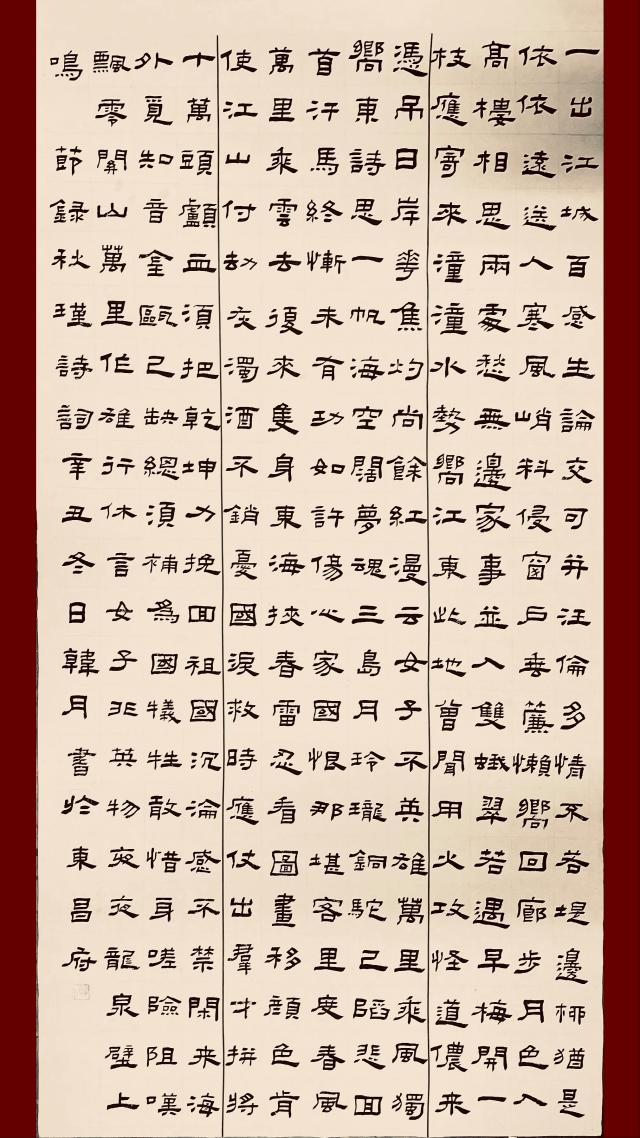 一出江城百感生論交可并汪倫多情不若堤邊柳猶是
依依遠送人寒風峭料侵窗戶垂簾懶嚮回廊步月色入
高樓相思兩處愁無邊家事並入雙蛾翠若遇早梅開一
枝應寄來潼潼水勢嚮江東此地曾聞用火攻怪道儂来
憑吊日岸華焦灼尚餘紅漫云女子不英雄萬里乘風獨
嚮東詩思一帆海空闊夢魂三島月玲瓏銅駝已陷悲回
首汗馬終慚未有功如許傷心家國恨那堪客里度春風
萬里乘雲去復來隻身東海挾春雷忍看圖畫移顏色肯
使江山付劫灰濁酒不銷憂國淚救時應仗出羣才拼將
十萬頭顱血須把乾坤力挽回祖國沉淪感不禁閑来海
外覓知音金甌已缺總須補為國犧牲敢惜身嗟險阻嘆
飄零關山萬里作雄行休言女子非英物夜夜龍泉壁上
鳴 節録秋瑾詩詞辛丑冬日韓月書於東昌府